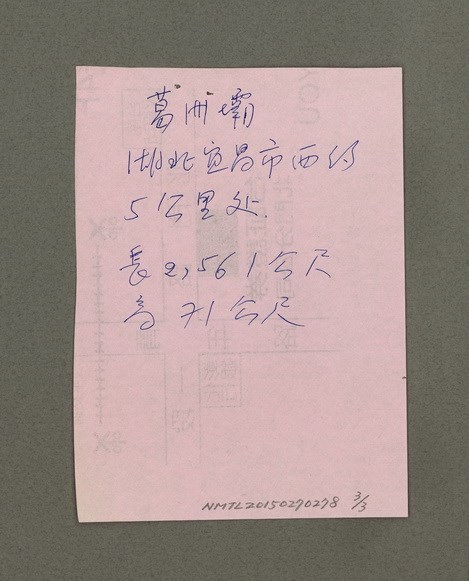 葛洲壩
湖北宜昌市西约
5公里处.
長2,561公尺
高71公尺
NMTL20150270278 3/3